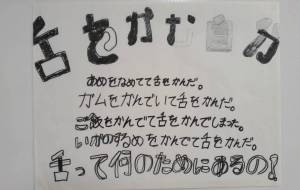 舌をかむ
あめをなめてて舌をかんだ。
ガムをかんでいて舌をかんだ。
ご飯をかんでて舌をかんでしまった。
いかのするめをかんでて舌をかんだ。
舌って何のためにあるの!